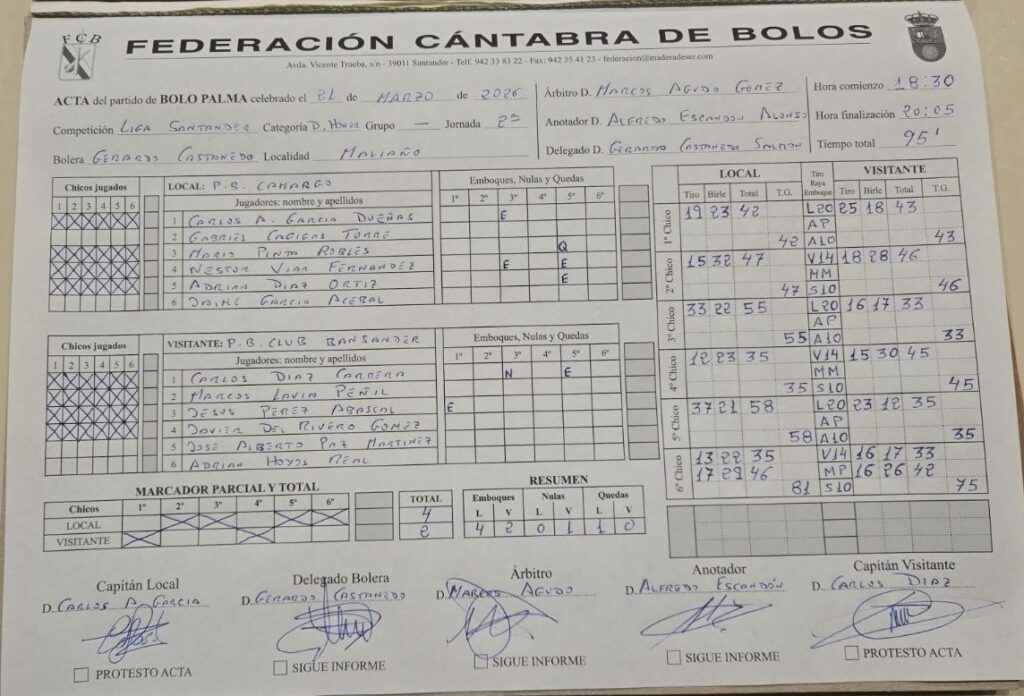 FCB
FEDERACIÓN CÁNTABRA DE BOLOS
Avda. Vicente Trueba, s/n - 39011 Santander - Telf. 942 33 83 22 - Fax: 942 35 41 23 - federacion@maderadeser.com
ACTA del partido de BOLO PALMA celebrado el 21 de MARZO de 2026
Competición LIGA SANTANDER Categoría D. HONOR Grupo — Jornada 2ª
Bolera GERARDO CASTANEDO Localidad MALIAÑO
Árbitro D. MARCOS AGUDO GOMEZ
Anotador D. ALFREDO ESCANDON ALONSO
Delegado D. GERARDO CASTANEDO
Hora comienzo 18:30
Hora finalización 20:05
Tiempo total 95'
Chicos jugados
1 2 3 4 5 6
LOCAL: P.B. CAMARGO
Jugadores: nombre y apellidos
Emboques, Nulas y Quedas
1º 2º 3º 4º 5º 6º
1 CARLOS A. GARCIA DUEÑAS E
2 GABRIEL CAGIGAS TORRE
3 MARIO PINTA ROBLES Q
4 NESTOR VIAR FERNANDEZ E E
5 ADRIAN DIAZ ORTIZ E
6 JAIME GARCIA ACEBAL
Chicos jugados
1 2 3 4 5 6
VISITANTE: P.B. CLUB BANSANDER
Jugadores: nombre y apellidos
Emboques, Nulas y Quedas
1º 2º 3º 4º 5º 6º
1 CARLOS DIAZ CARRERA N E
2 MARCOS LAVIN PEÑIL
3 JESUS PEREZ ABASCAL E
4 JAVIER DEL RIVERO GOMEZ
5 JOSE ALBERTO PAZ MARTINEZ
6 ADRIAN HOYOS REAL
LOCAL Tiro Raya Emboque VISITANTE
Tiro Birle Total T.G. Tiro Birle Total T.G.
1º Chico 19 23 42 L20 25 18 43
AP
42 A10 43
2º Chico 15 32 47 V14 18 28 46
MM
47 S10 46
3º Chico 33 22 55 L20 16 17 33
AP
55 A10 33
4º Chico 12 23 35 V14 15 30 45
MM
35 S10 45
5º Chico 37 21 58 L20 23 12 35
AP
58 A10 35
6º Chico 13 22 35 V14 16 17 33
17 29 46 MP 16 26 42
81 S10 75
MARCADOR PARCIAL Y TOTAL
Chicos 1º 2º 3º 4º 5º 6º TOTAL
LOCAL 4
VISITANTE 2
RESUMEN
Emboques Nulas Quedas
L V L V L V
4 2 0 1 1 0
Capitán Local
D. CARLOS A. GARCIA
PROTESTO ACTA
Delegado Bolera
D. GERARDO CASTANEDO
SIGUE INFORME
Árbitro
D. MARCOS AGUDO
SIGUE INFORME
Anotador
D. ALFREDO ESCANDÓN
SIGUE INFORME
Capitán Visitante
D. CARLOS DIAZ
PROTESTO ACTA